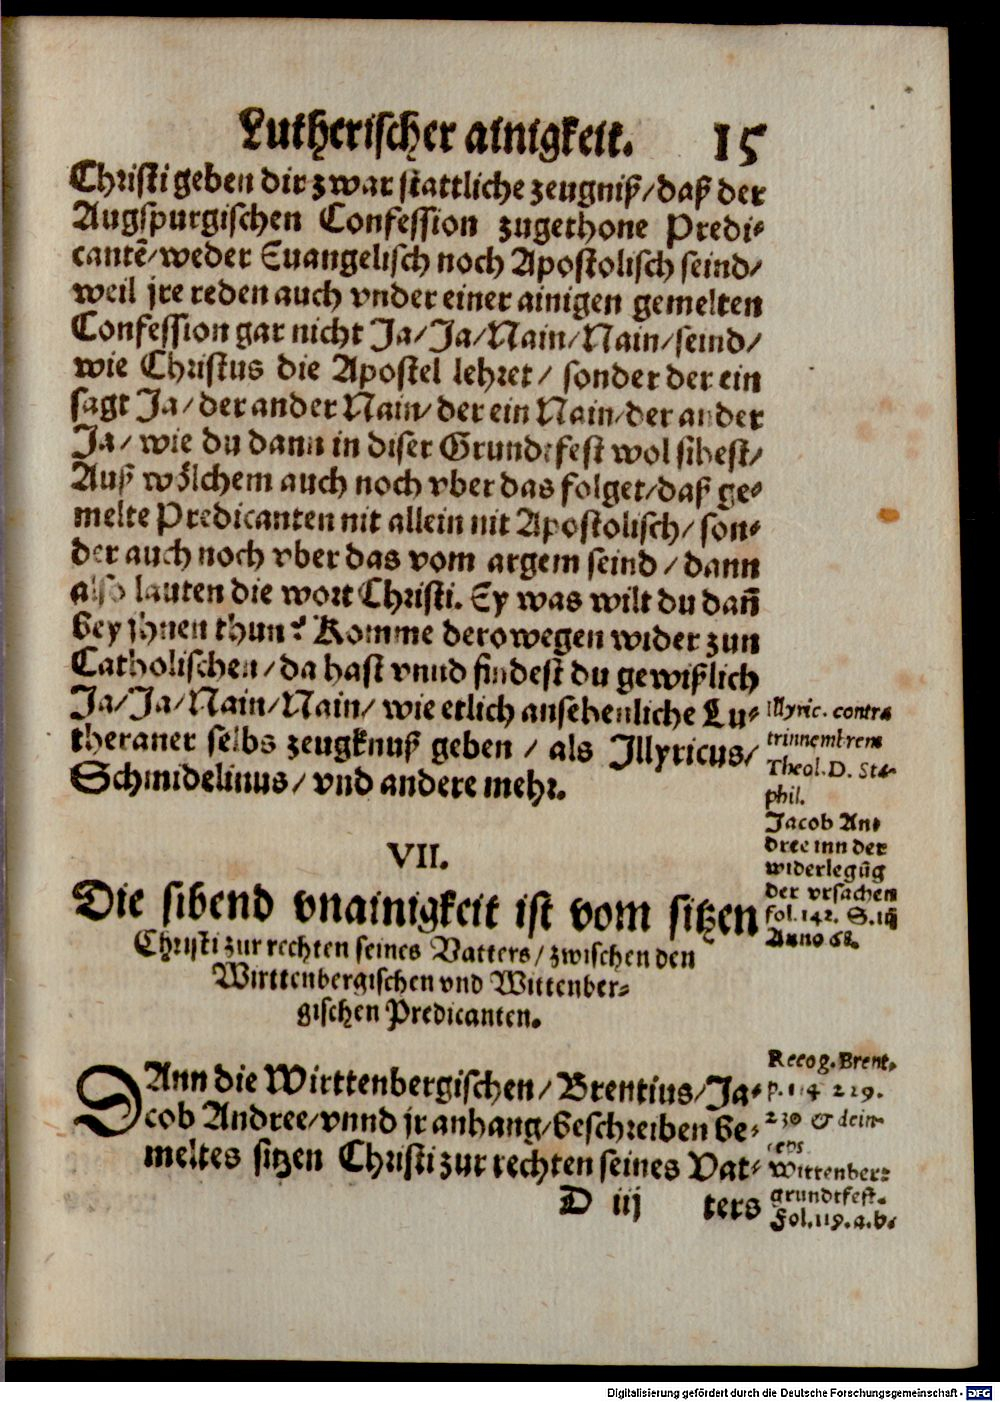 Lutherischer ainigkeit. 15
Christi geben dir zwar stattliche zeugniß/ daß der
Augspurgischen Confession zugethone Predi-
cantẽ/ weder Euangelisch noch Apostolisch seind/
weil jre reden auch vnder einer ainigen gemelten
Confession gar nicht Ja/ Ja/ Nain/ Nain/ seind/
wie Christus die Apostel lehret/ sonder der ein
sagt Ja/ der ander Nain/ der ein Nain/ der ander
Ja/ wie du dann in diser Grundtfest wol sihest/
Auß wölchem auch noch vber das folget/ daß ge-
melte Predicanten nit allein nit Apostolisch/ son-
der auch noch vber das vom argem seind/ dann
also lauten die wort Christi. Ey was wilt du dañ
bey jhnen thun? Komme derowegen wider zun
Catholischen/ da hast vnnd findest du gewißlich
Ja/ Ja/ Nain/ Nain/ wie etlich ansehenliche Lu-
theraner selbs zeugknuß geben/ als Illyricus/
Schmidelinus/ vnd andere mehr.
Illyric. contra
trinnembrem
Theol. D. Sta-
phil.
Jacob An-
dree inn der
widerlegũg
der vrsachen
fol. 142. S. iij
Anno 68.
VII.
Die sibend vnainigkeit ist vom sitzen
Christi zur rechten seines Vatters/ zwischen den
Wirttenbergischen vnd Wittenber-
gischen Predicanten.
DAnn die Wirttenbergischen/ Brentius/ Ja-
cob Andree/ vnnd jr anhang/ beschreiben be-
meltes sitzen Christi zur rechten seines Vat-
D iij ters
Recog. Brent.
p. 229.
230 & dein-
ceps
Wittenber-
grundtfest.
Fol. 119. a. b.
Digitalisierung gefördert durch die Deutsche Forschungsgemeinschaft - DFG